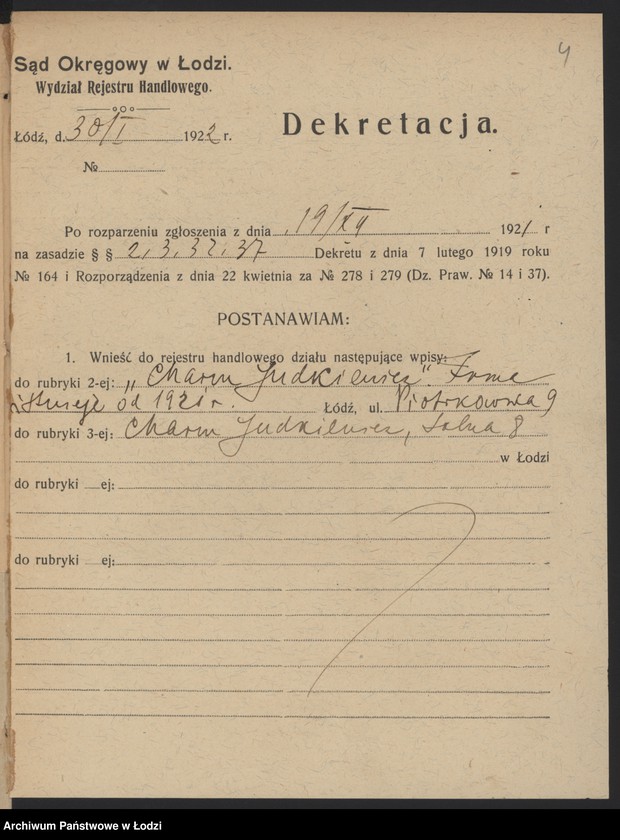 4
Sąd Okręgowy w Łodzi.
Wydział Rejestru Handlowego.
Łódź, d. 30/I 1922 r.
№
Dekretacja.
Po rozparzeniu zgłoszenia z dnia 19/XII 1921 r
na zasadzie § § 2, 3, 32, 37 Dekretu z dnia 7 lutego 1919 roku
№ 164 i Rozporządzenia z dnia 22 kwietnia za № 278 i 279 (Dz. Praw. № 14 i 37).
POSTANAWIAM:
1. Wnieść do rejestru handlowego działu następujące wpisy:
do rubryki 2-ej: „Charm Judkiewicz". Firma
istnieje od 1921 r. Łódź, ul. Piotrkowska 9
do rubryki 3-ej: Charm Judkiewicz, Solna 8
w Łodzi
do rubryki ej:
do rubryki ej:
Archiwum Państwowe w Łodzi